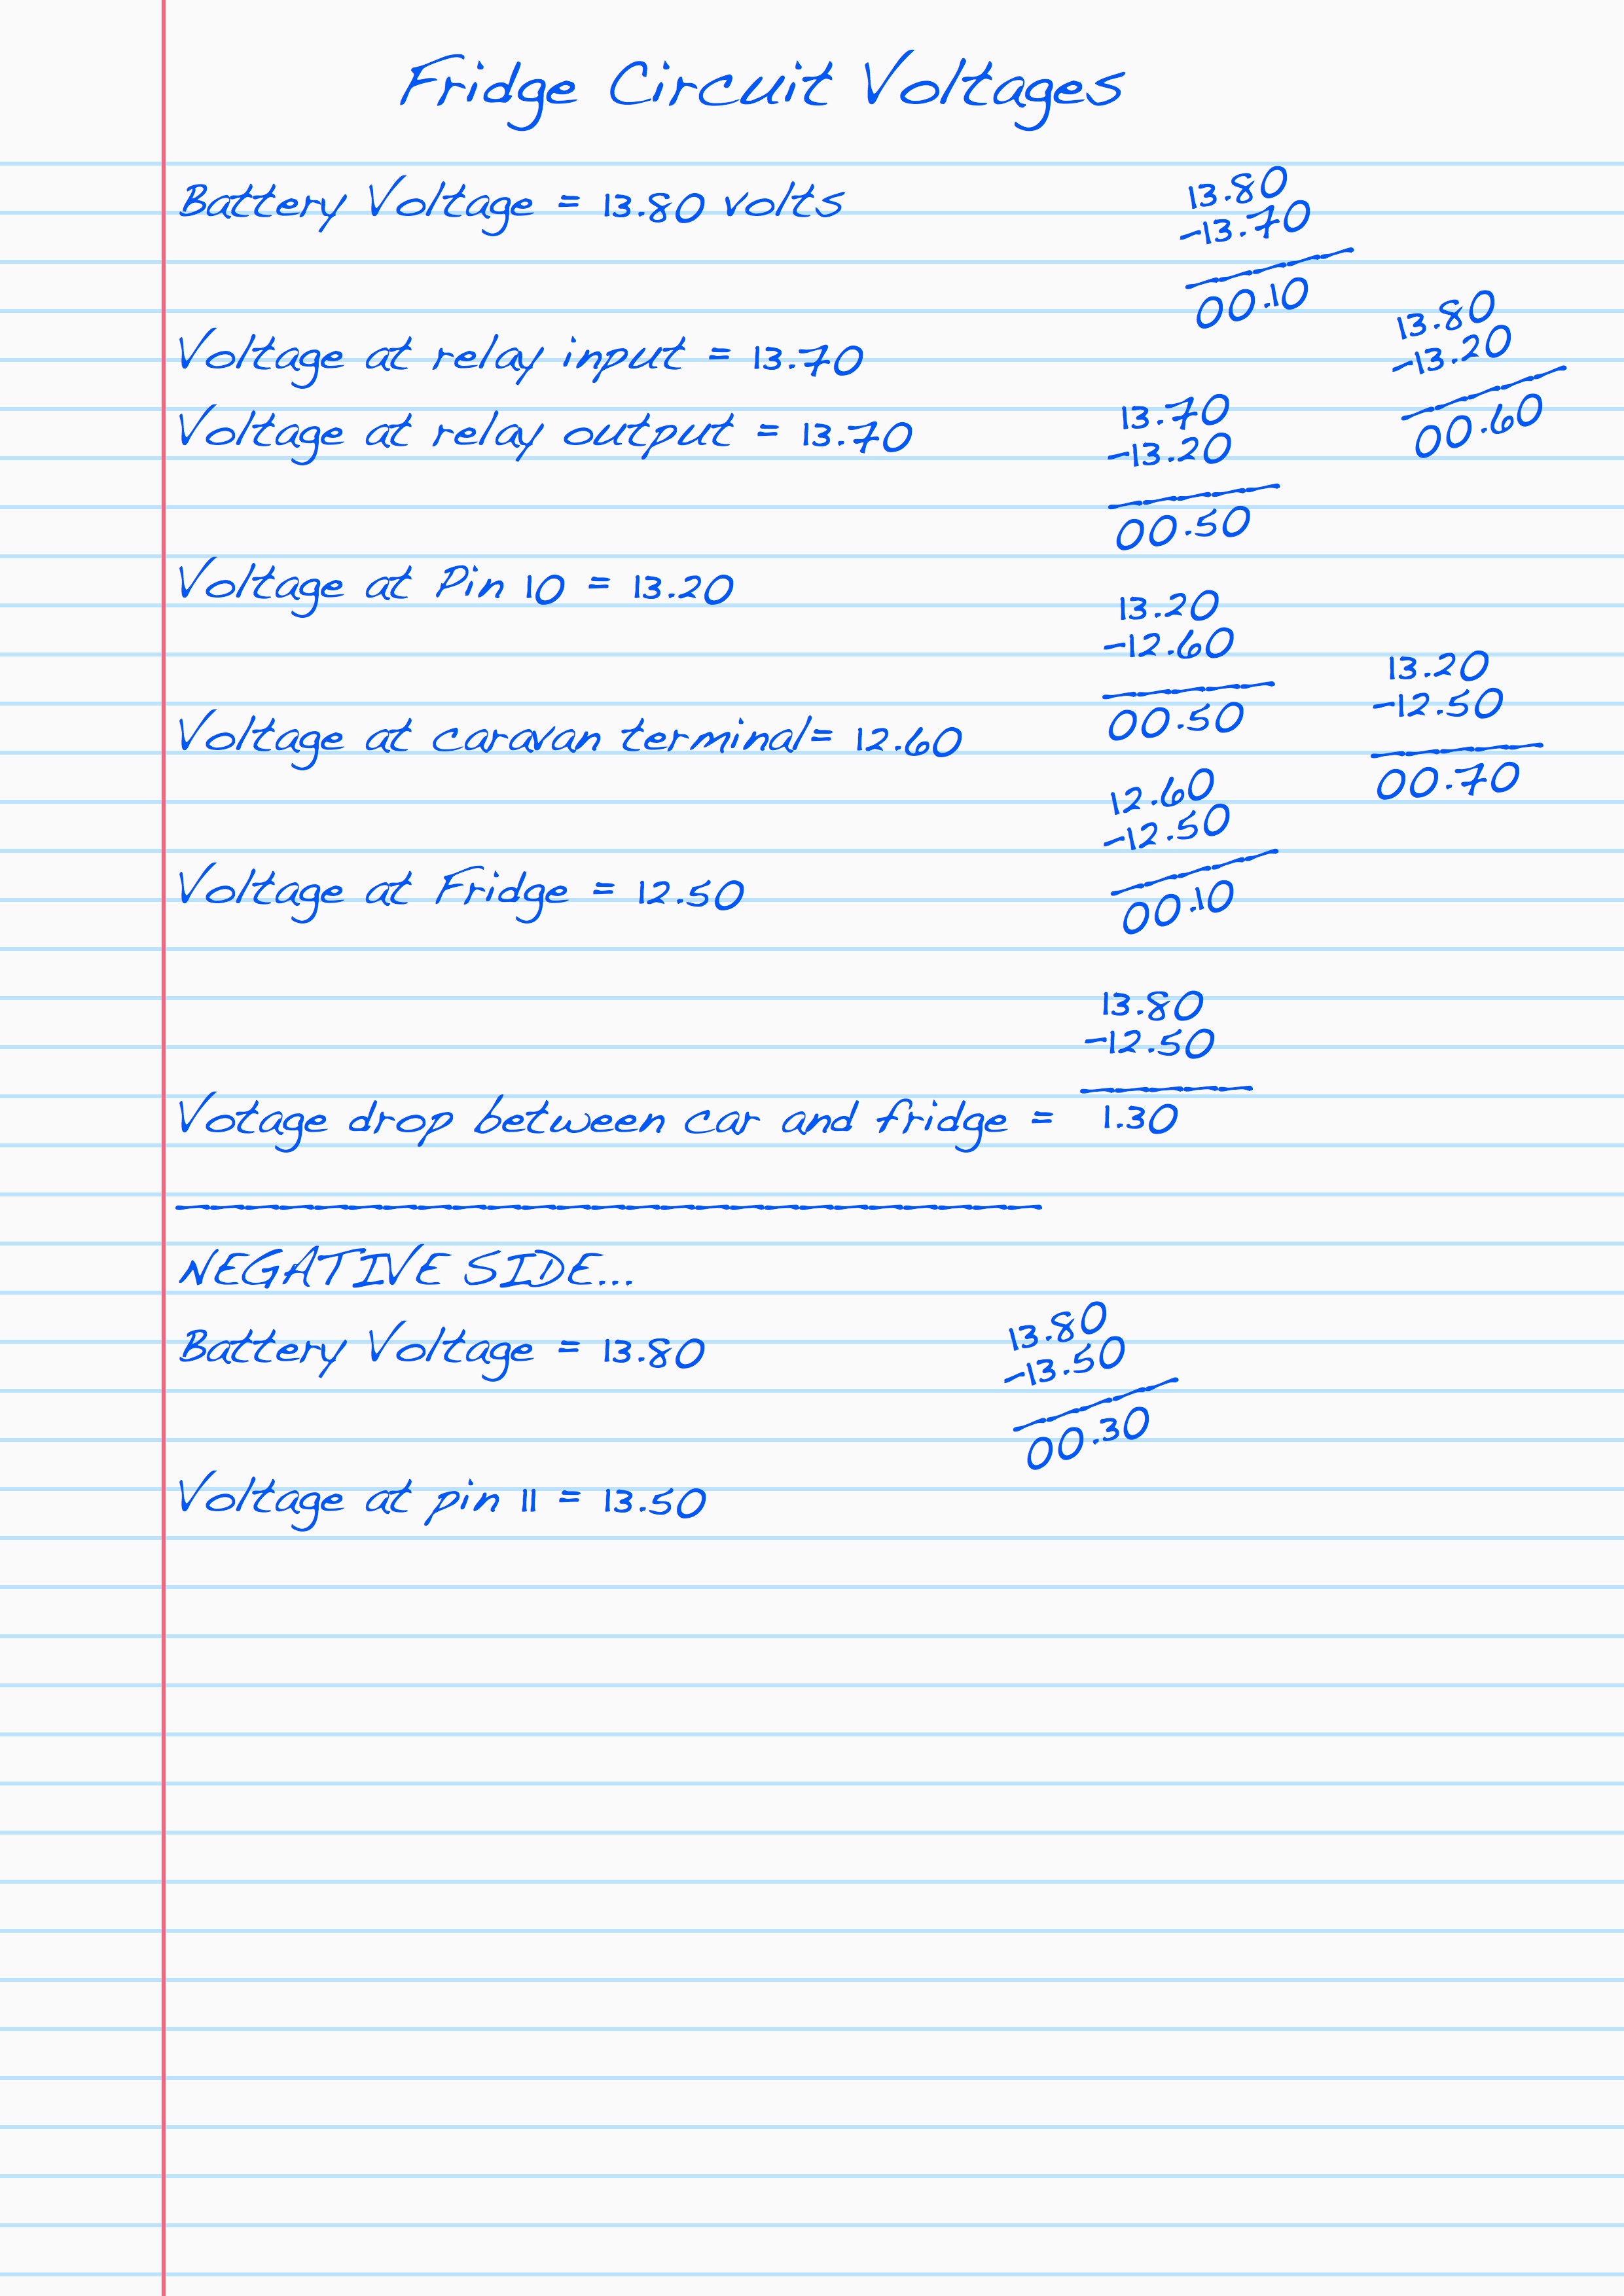 Fridge Circuit Voltages
Battery Voltage = 13.80 volts
13.80
-13.70
00.10
Voltage at relay input = 13.70
13.80
-13.20
00.60
Voltage at relay output = 13.70
13.70
-13.20
00.50
Voltage at Pin 10 = 13.20
13.20
-12.60
00.50
13.20
-12.50
00.70
Voltage at caravan terminal= 12.60
12.60
-12.50
00.10
Voltage at Fridge = 12.50
13.80
-12.50
Votage drop between car and fridge = 1.30
NEGATIVE SIDE...
Battery Voltage = 13.80
13.80
-13.50
00.30
Voltage at pin 11 = 13.50